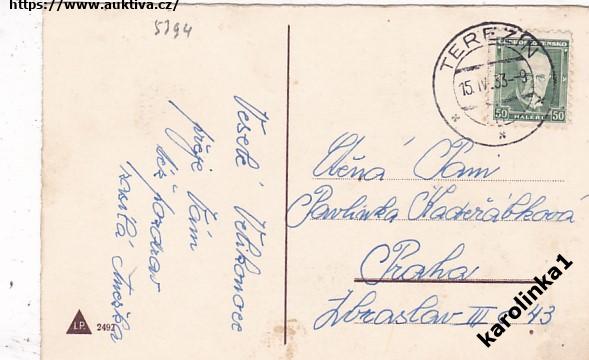 https://www.auktiva.cz/
5394
TEREZÍN
15.IV.33.-9
ČESKOSLOVENSKO
50 HALÉŘŮ 50
Veselé Velikonoce
přeje Vám
též pozdrav
zasílá Anežka
Ctěná Paní
Pavlinka Kadeřábková
Praha
Zbraslav III č. 43
L.P. 2492
karolinka1